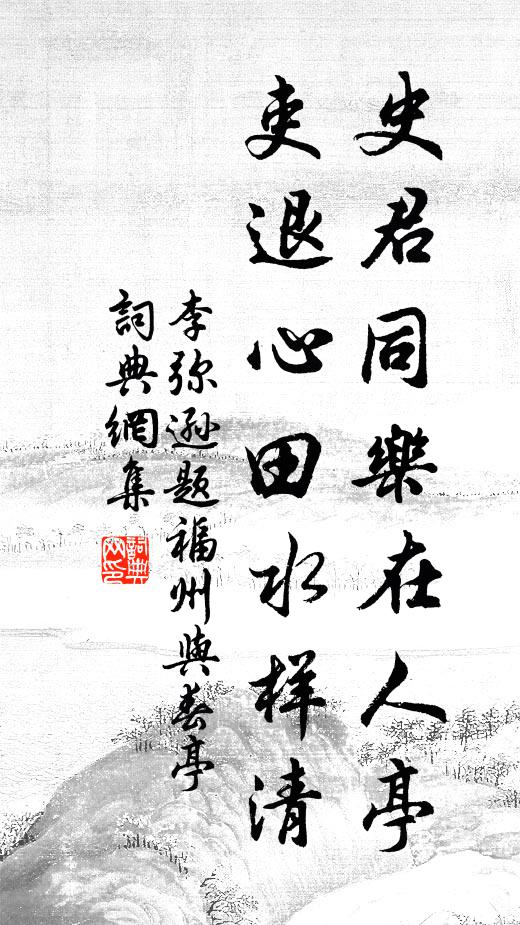 史君同樂在人亭
吏退心田水样清
李弥逊题福州與春亭
詞典網集
詞典网印